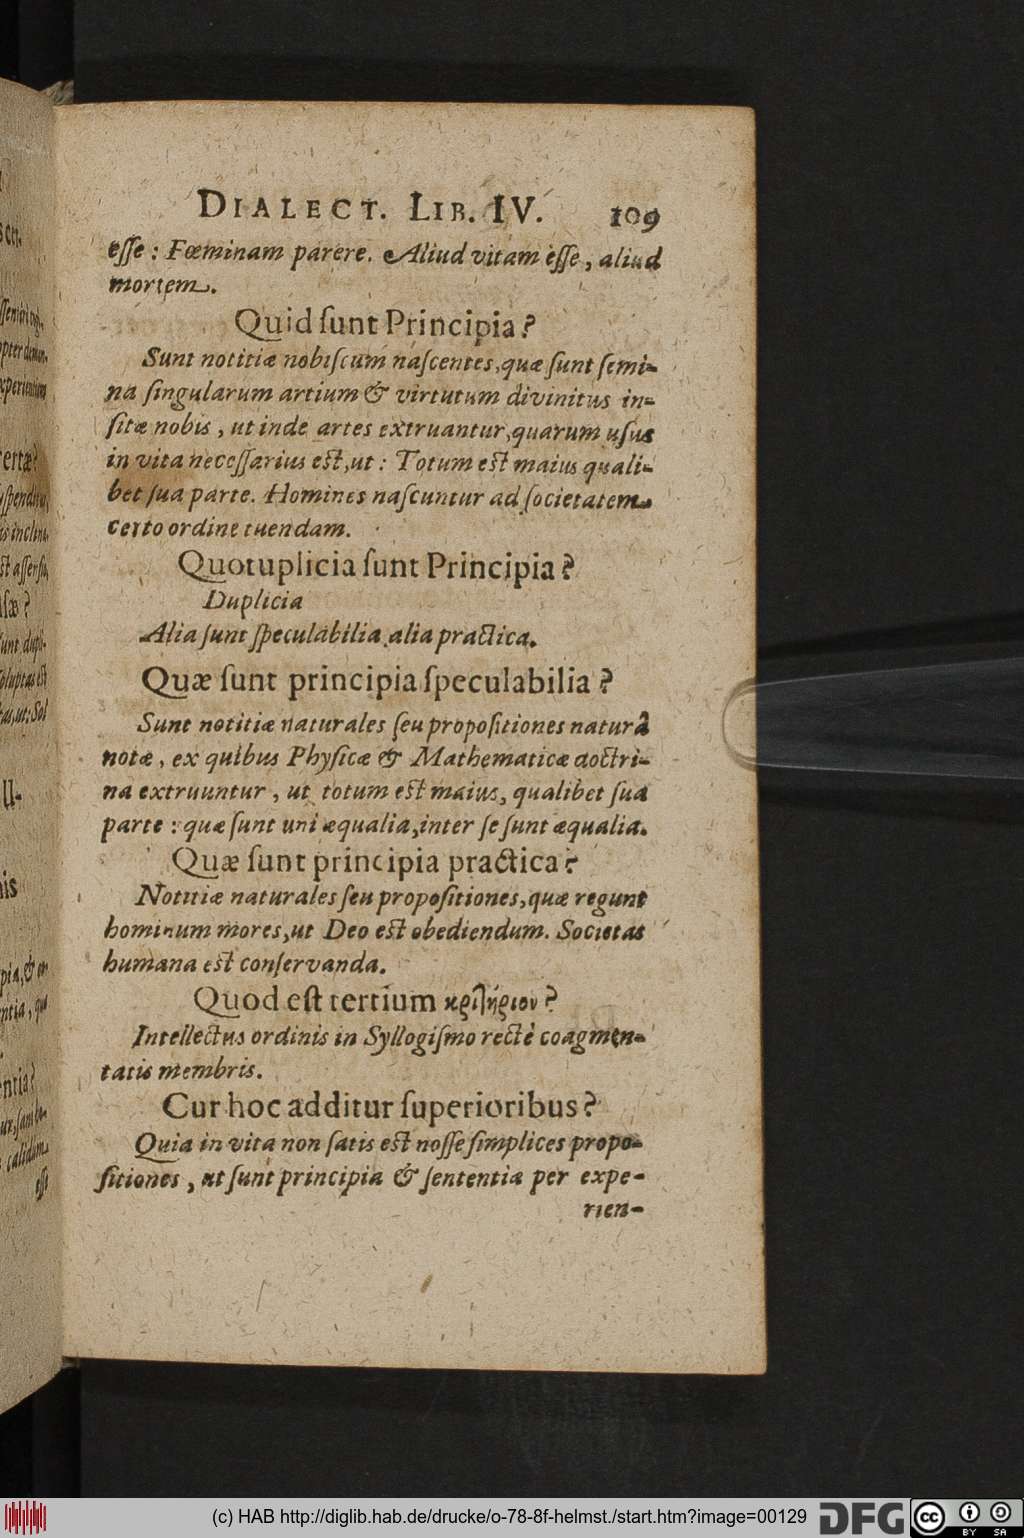 DIALECT. LIB. IV. 109
esse : Fœminam parere. Aliud vitam esse, aliud
mortem.
Quid ſunt Principia?
Sunt notitiæ nobiſcum naſcentes, quæ ſunt ſemi-
na ſingularum artium & virtutum divinitus in-
ſitæ nobis, ut inde artes extruantur, quarum uſus
in vita neceſſarius eſt, ut : Totum eſt maius quali-
bet ſua parte. Homines naſcuntur ad ſocietatem
certo ordine tuendam.
Quotuplicia ſunt Principia?
Duplicia
Alia ſunt ſpeculabilia, alia practica.
Quæ ſunt principia ſpeculabilia?
Sunt notitiæ naturales ſeu propoſitiones naturâ
notæ, ex quibus Phyſicæ & Mathematicæ doctri-
na extruuntur, ut totum eſt maius, qualibet ſua
parte : quæ ſunt uni æqualia, inter ſe ſunt æqualia.
Quæ ſunt principia practica?
Notitiæ naturales ſeu propoſitiones, quæ regunt
hominum mores, ut Deo eſt obediendum. Societas
humana eſt conſervanda.
Quod eſt tertium κριτήριον?
Intellectus ordinis in Syllogiſmo rectè coagmen-
tatis membris.
Cur hoc additur ſuperioribus?
Quia in vita non ſatis eſt noſſe ſimplices propo-
ſitiones, ut ſunt principia & ſententiæ per expe-
rien-
(c) HAB http://diglib.hab.de/drucke/o-78-8f-helmst./start.htm?image=00129
DFG
cc BY SA